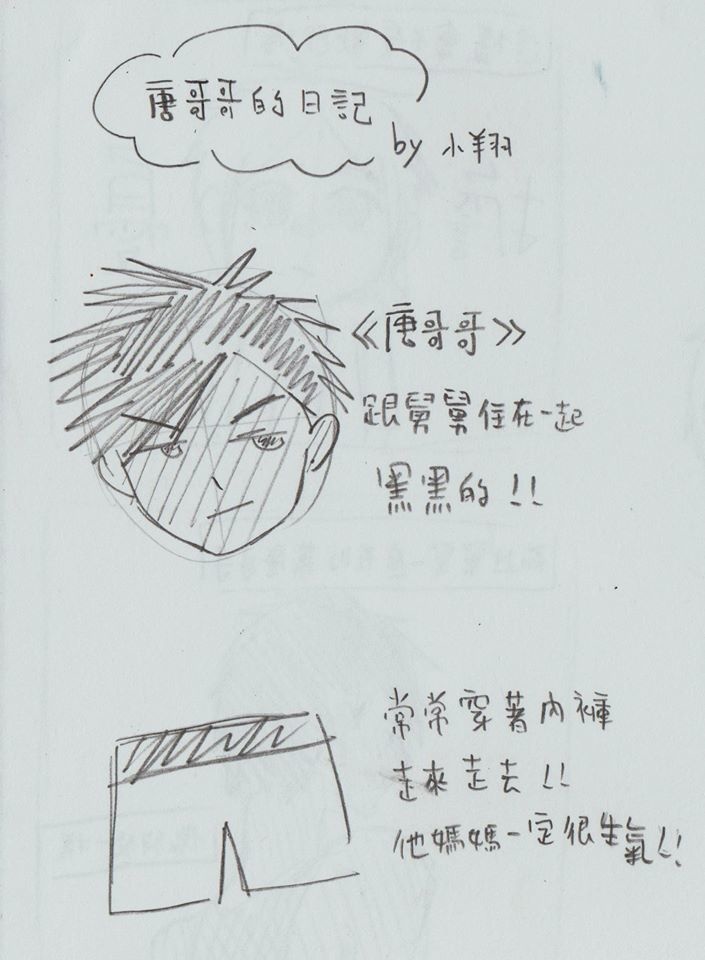 唐哥哥的日記
by 小翔
《唐哥哥》
跟舅舅住在一起
黑黑的!!
常常穿著內褲
走來走去!!
他媽媽一定很生氣!!